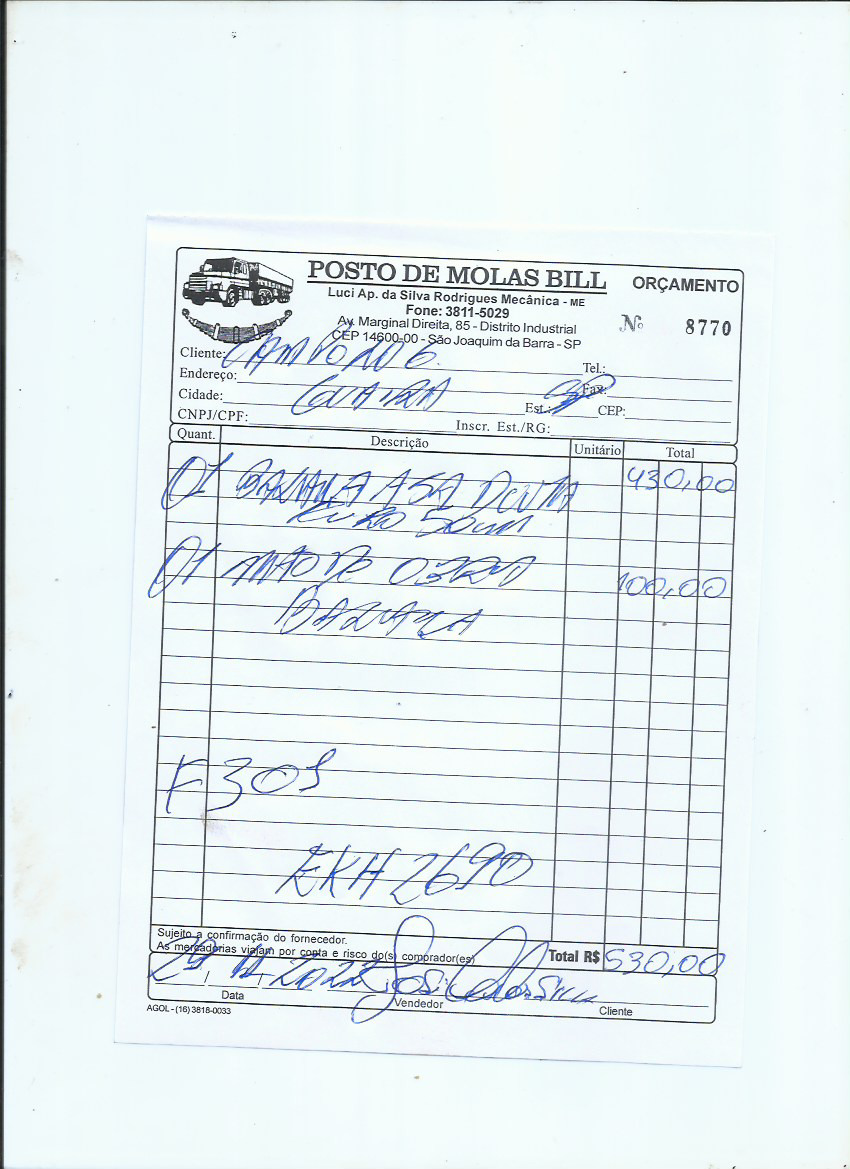 POSTO DE MOLAS BILL
ORÇAMENTO
Luci Ap. da Silva Rodrigues Mecânica - ME
Fone: 3811-5029
Av. Marginal Direita, 85 - Distrito Industrial
CEP 14600-00 - São Joaquim da Barra - SP
Nº 8770
Cliente:
Tel.:
Endereço:
Fax:
Cidade: GUAIRA Est.: SP CEP:
CNPJ/CPF: Inscr. Est./RG:
Quant. Descrição Unitário Total
01 430,00
01 MAO DE OBRA 100,00
F 30
EKH 2690
Sujeito a confirmação do fornecedor.
As mercadorias viajam por conta e risco do(s) comprador(es)
Total R$ 530,00
2022
Data Vendedor Cliente
AGOL - (16) 3818-0033